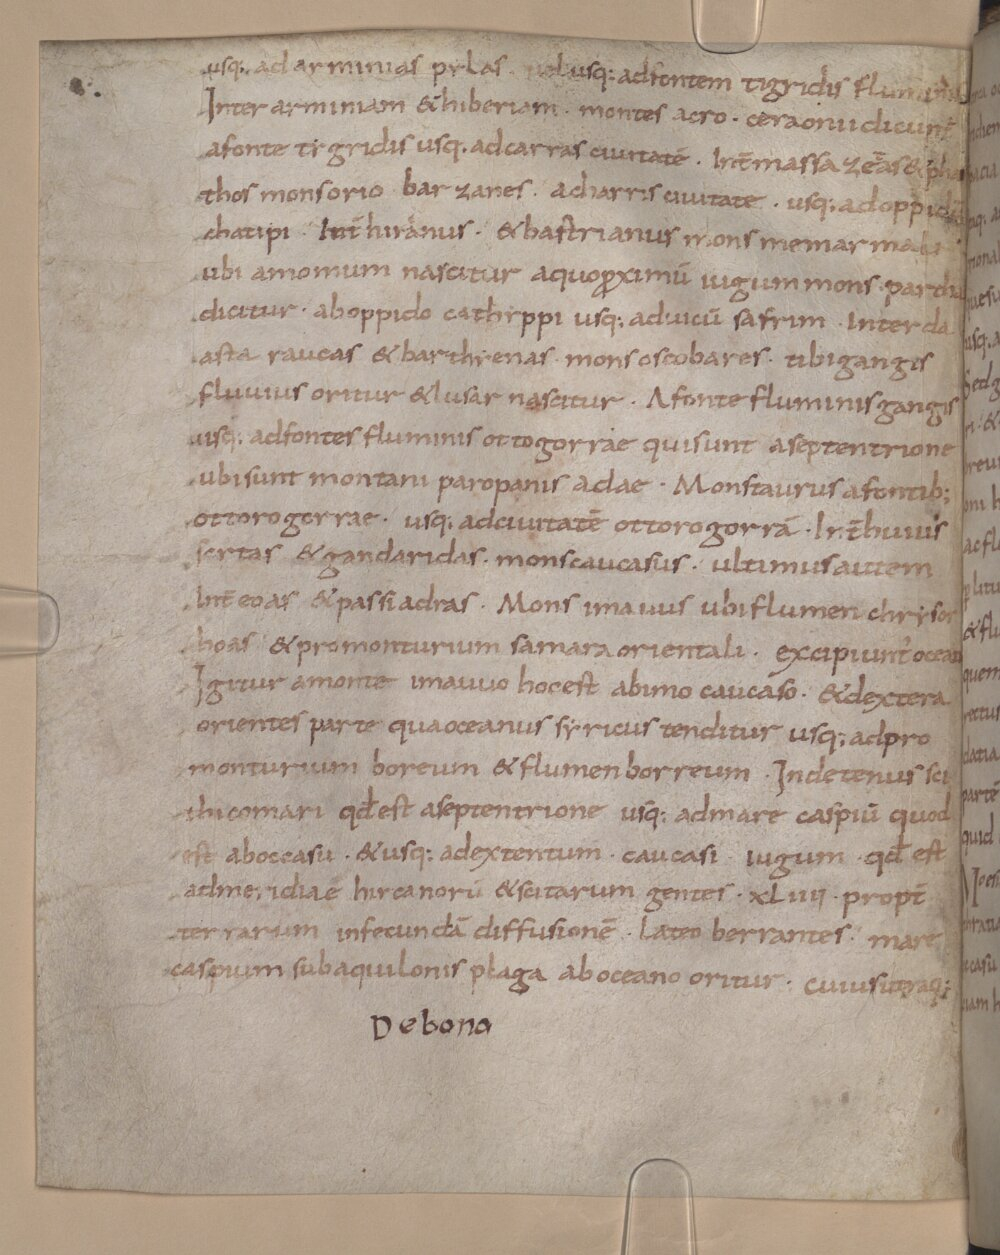 usq; ad arminias pylas. uel usq; ad fontem tigridis fluminis
Inter arminiam & hiberiam. montes acro. ceraonii dicunt̄
afonte tigridis usq; adcarras ciuitatē. Int̄ massazetas & pha
thos mons orio barzanes. acharris ciuitate. usq; adoppidū
chatipi. Int̄ hircanus. & bastrianus mons memarmali
ubi amomum nascitur aquo ꝓximū iugum mons pardu
dicitur. aboppido cathippi usq; aduicū safrim. Inter da
asta raucas & barthrenas. mons oscobares. ubi gangis
fluuius oritur & lusar nascitur. Afonte fluminis gangis
usq; adfontes fluminis ottogorrae qui sunt aseptentrione
ubi sunt montani paropanis adae. Mons taurus afontib;
ottorogorrae. usq; adciuitatē ottorogorrā. Int̄ huius
sertas & gandaridas. mons caucasus. ultimus autem
Int̄ eoas & passiadras. Mons imauus ubi flumen chrysor
hoas & promonturium samara orientali. excipiunt̄ ocean
Igitur amonte imauuo hoc est abimo caucaso. & dextera
orientes parte qua oceanus syricus tenditur usq; adpro
monturium boreum & flumen borreum. Inde tenus sci
thico mari qđ est aseptentrione usq; admare caspiū quod
est aboccasu. & usq; adextentum. caucasi iugum. qđ est
admeridiaē hircanorū & scitarum gentes. xLiiii. propt̄
terrarum infecundā diffusionē. Lateo berrantes. mare
caspium sub aquilonis plaga aboceano oritur. cuius utraq;
Debona